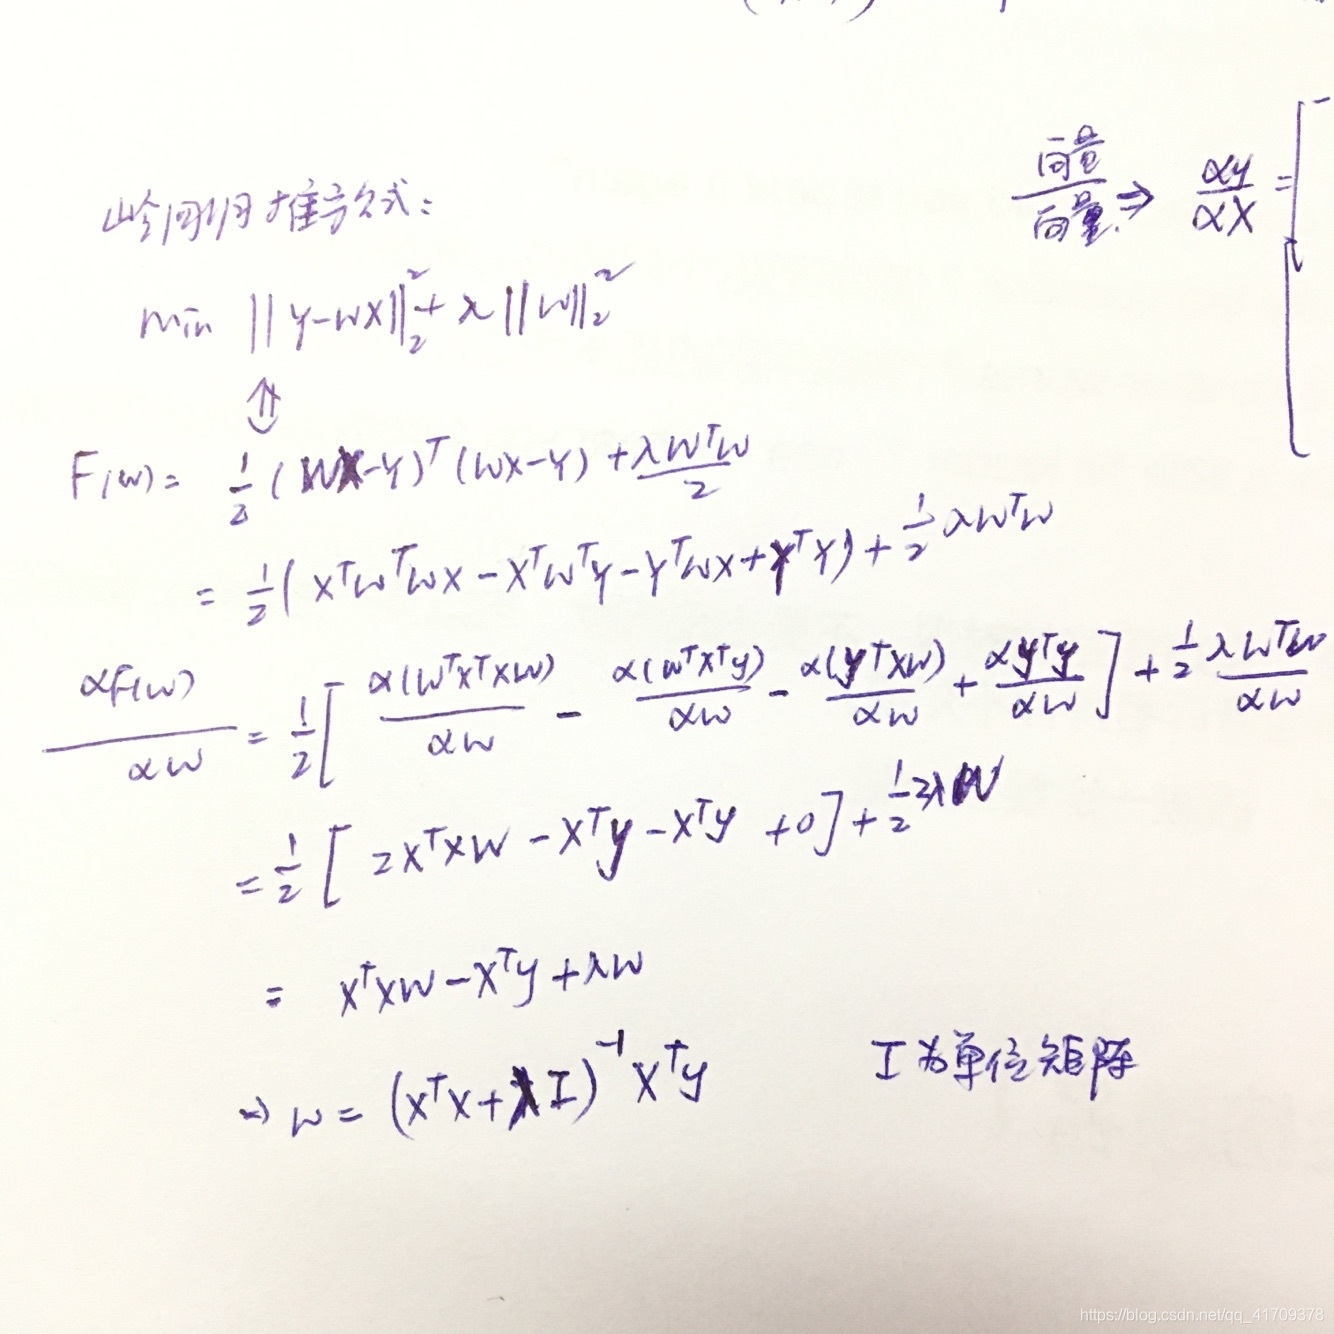 岭回归推导公式:
min ||y-wX||₂² + λ||w||₂²
⇕
F(w) = 1/2 (WX-Y)ᵀ(WX-Y) + λWᵀW/2
= 1/2 (XᵀWᵀWX - XᵀWᵀy - YᵀWX + YᵀY) + 1/2 λWᵀW
αF(w)/αw = 1/2 [α(WᵀXᵀXW)/αw - α(WᵀXᵀy)/αw - α(yᵀXW)/αw + αyᵀy/αw] + 1/2 λWᵀW/αw
= 1/2 [2XᵀXW - Xᵀy - Xᵀy + 0] + 1/2 2λW
= XᵀXW - Xᵀy + λW
⇒ W = (XᵀX + λI)⁻¹Xᵀy
I为单位矩阵
向量/向量 ⇒ αy/αX = [
https://blog.csdn.net/qq_41709378